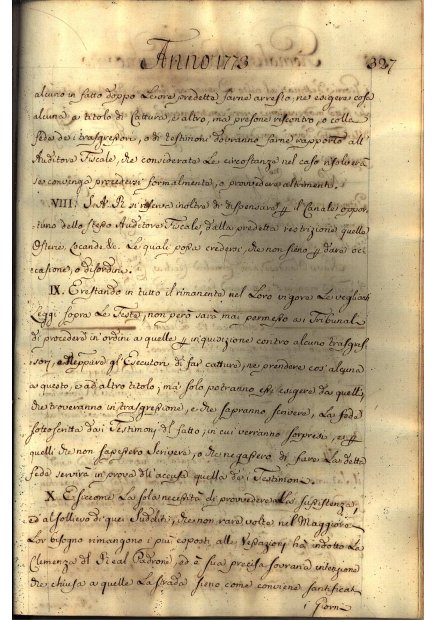 Anno 1773 327
alcuno in fatto doppo Le ore predette farne arresto, ne esigere cosa
alcuna a titolo di Cattura, o altro, ma presone riscontro, o colla
fede de i trasgressori, o di testimoni dovranno farne rapporto all'
Auditore Fiscale, che considerate Le circostanze nel caso risolverà
se convenga procedersi formalmente, o provedere altrimenti.
VIII. S. A. R. si riserva inoltre di dispensare p il Canale oppor
tuno dello stesso Auditore Fiscale dalla predetta restrizione quelle
Osterie, Locande &c. Le quali possa credersi, che non sieno p dare oc
casione, o disordine.
IX. E restando in tutto il rimanente nel Loro vigore Le veglianti
Leggi sopra Le Feste, non però sarà mai permesso ai Tribunali
di procedere in ordine a quelle p inquisizione contro alcuno trasgres
sori, e neppure gl'Esecutori di far catture, ne prendere cos'alcuna
a questo, o ad altro titolo; ma solo potranno esigere da quelli,
che troveranno in trasgressione, e che sapranno scrivere, La fede
sottoscritta da i Testimoni del fatto, in cui verranno sorpresi, e p
quelli che non sapessero scrivere, o che negassero di fare La detta
fede servirà in prova dell'accusa quella de i Testimoni.
X. E siccome La sola necessità di provvedere alla sussistenza,
ed al sollievo di quei Sudditi, che non rare volte nel Maggiore
Lor bisogno rimangono i più esposti alle Vessazioni ha indotto La
Clemenza del Real Padrone, ed è sua precisa sovrana intenzione
che chiusa a quelle La strada sieno come conviene santificati
i Giorni